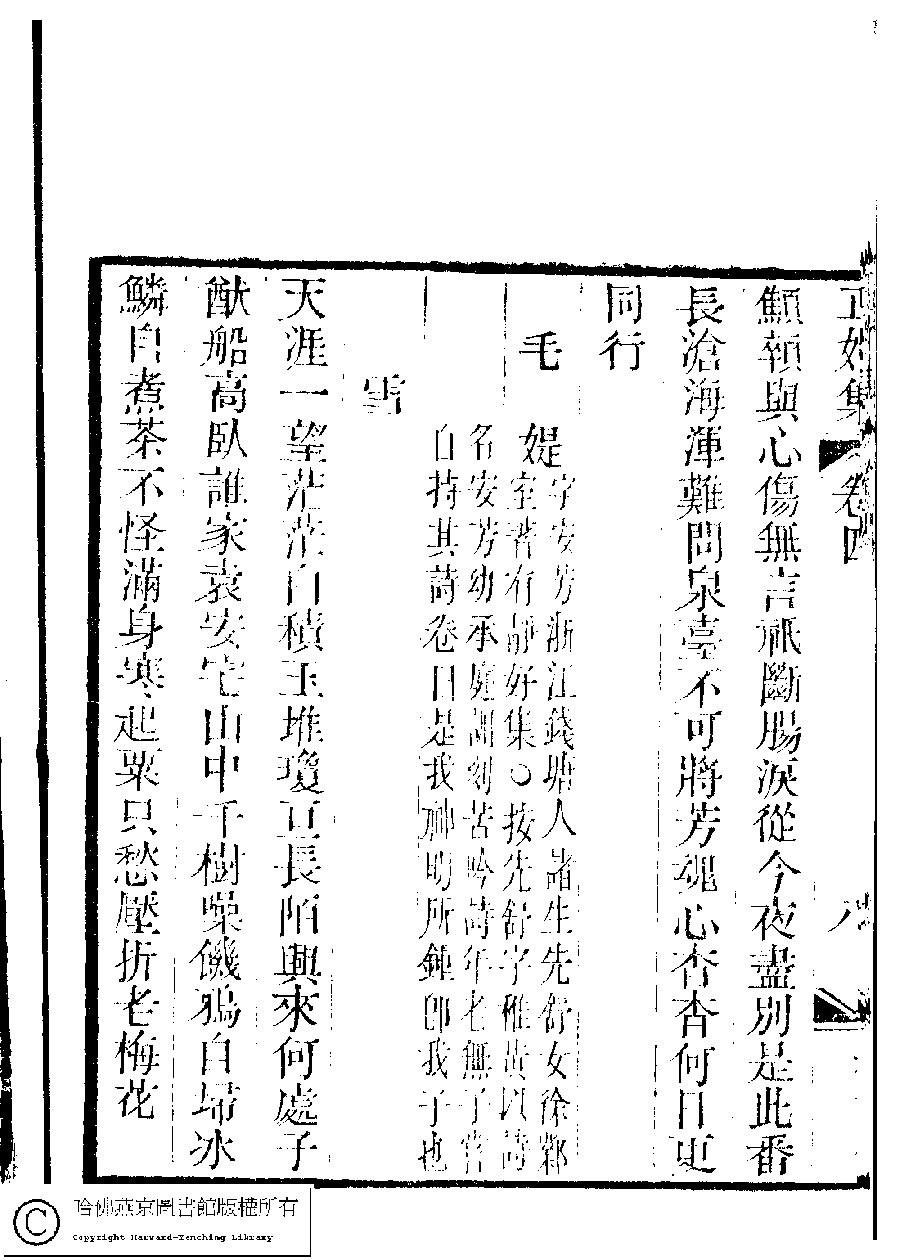 正始集 卷四 八
顦顇與心傷無言祇斷腸淚從今夜盡別是此番
長滄海渾難問泉臺不可將芳魂心杳杳何日更
同行
毛 媞
字安芳浙江錢塘人諸生先舒女徐鄴
室著有靜好集○按先舒字稚黃以詩
名安芳幼承庭訓刻苦吟詩年老無子嘗
自持其詩卷曰是我神明所鍾卽我子也
雪
天涯一望茫茫白積玉堆瓊亘長陌興來何處子
猷船高臥誰家袁安宅山中千樹噪饑鴉自埽冰
鱗自煮茶不怪滿身寒起粟只愁壓折老梅花
哈佛燕京圖書館版權所有
Copyright Harvard-Yenching Library